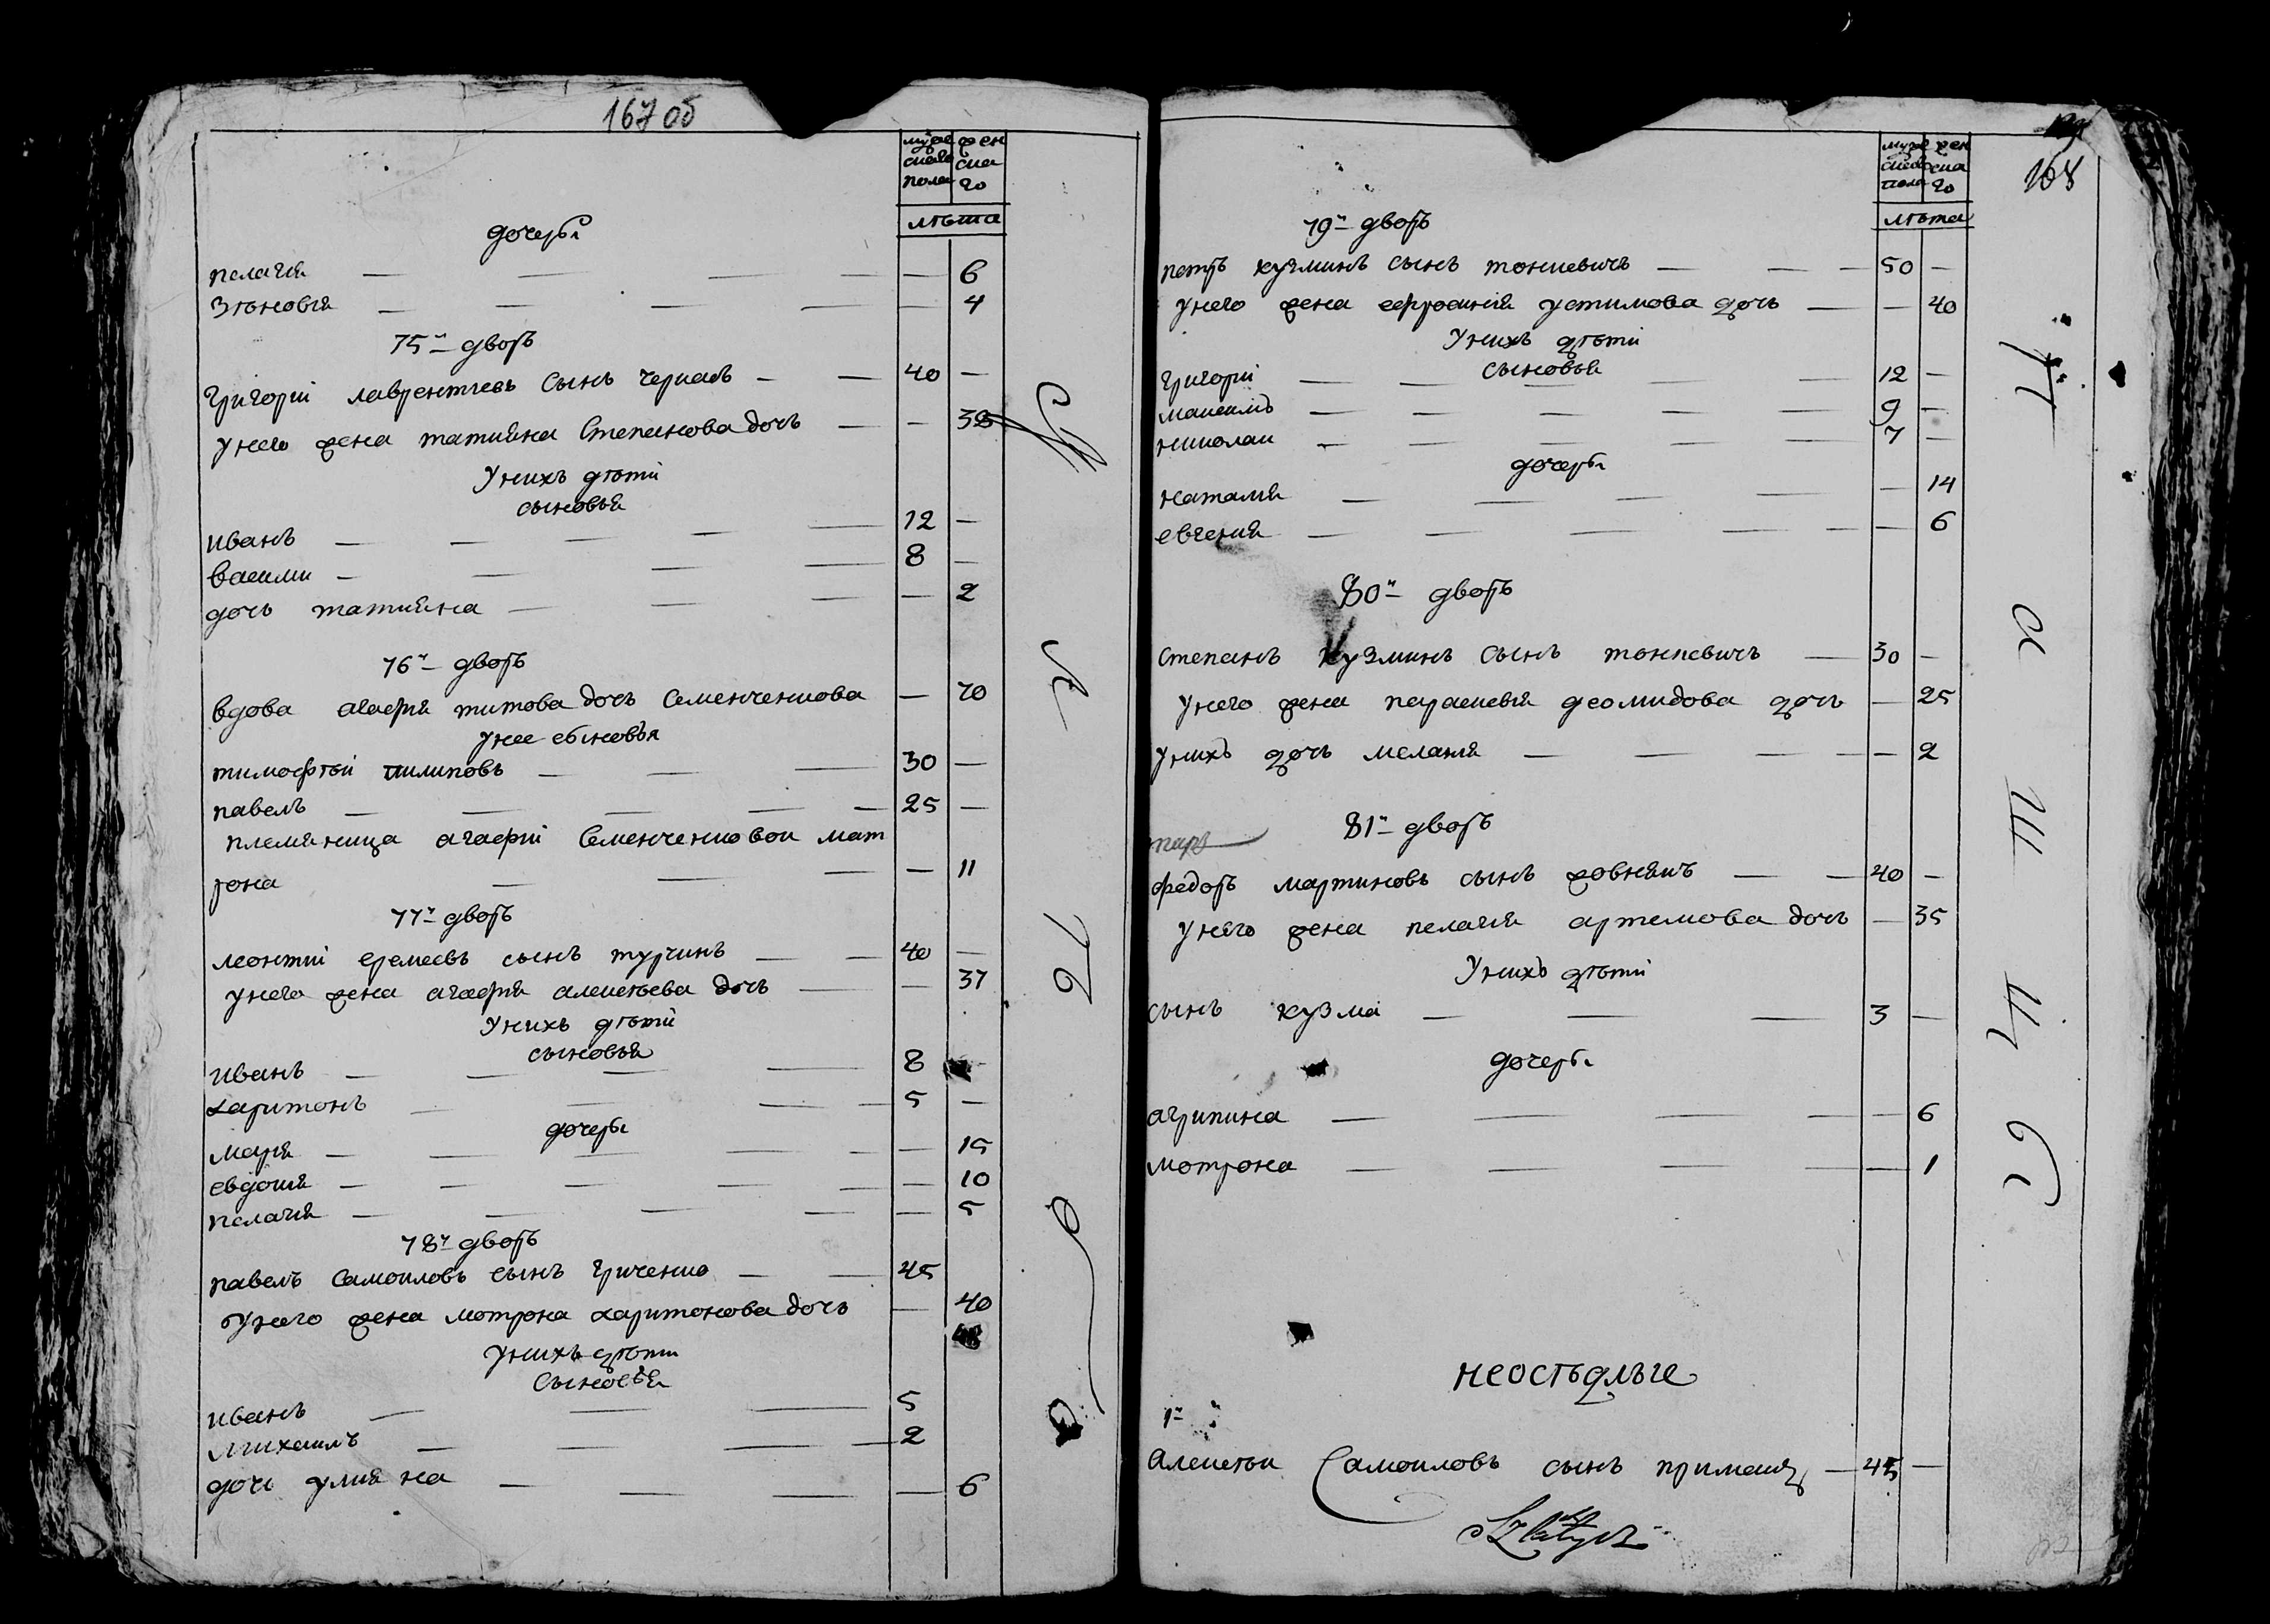 167 об
муже ска пола
жен ска го
лѣта
дочеры
пелагѣя — 6
Зѣновѣя — 4
75й дворъ
Григорій лаврентѣевъ сынъ чернявъ 40 —
унего жена татияна Степанова дочь —
Унихъ дѣти
сыновья
иванъ — 12 —
васили — 8 —
дочь татияна — 2
76й дворъ
вдова агафия титова дочь Семенченкова — 70
унее сыновъя
тимофѣй пилиповъ — 30 —
павелъ — 25 —
племяница агафіи Семенченковои мат
рона — 11
77й дворъ
леонтій еремеевъ сынъ турчинъ — 40 —
унего жена агафия алексѣева дочь — 37
Унихъ дѣти
сыновья
иванъ — 8 —
харитонъ — 5 —
дочеры
мария — 15
евдокия — 10
пелагия — 5
78й дворъ
павелъ Самоиловъ сынъ гриченко — 45
унего жена мотрона харитонова дочь — 40
унихъ дѣти
Сыновья
иванъ — 5
михаилъ — 2
дочь улияна — 6
168
муже ска пола
жен ска го
лѣта
79й дворъ
петръ кузминъ сынъ тонкевичъ — 50 —
унего жена ефросинія устимова дочь — 40
Унихъ дѣти
сыновья
григорій — 12 —
максимъ — 9 —
николаи — 7 —
дочеры
наталия — 14
евгения — 6
80й дворъ
степанъ кузминъ сынъ тонкевичъ — 30 —
унего жена парасковія деомидова дочь — 25
унихъ дочь мелания — 2
81й дворъ
федоръ мартиновъ сынъ жовнякъ — 40 —
унего жена пелагия артемова дочь — 35
Унихъ дѣти
сынъ кузма — 3 —
дочеры
агрипина — 6
мотрона — 1
неосѣдлыге
1й
алексѣи Самоиловъ сынъ примакъ — 45 —